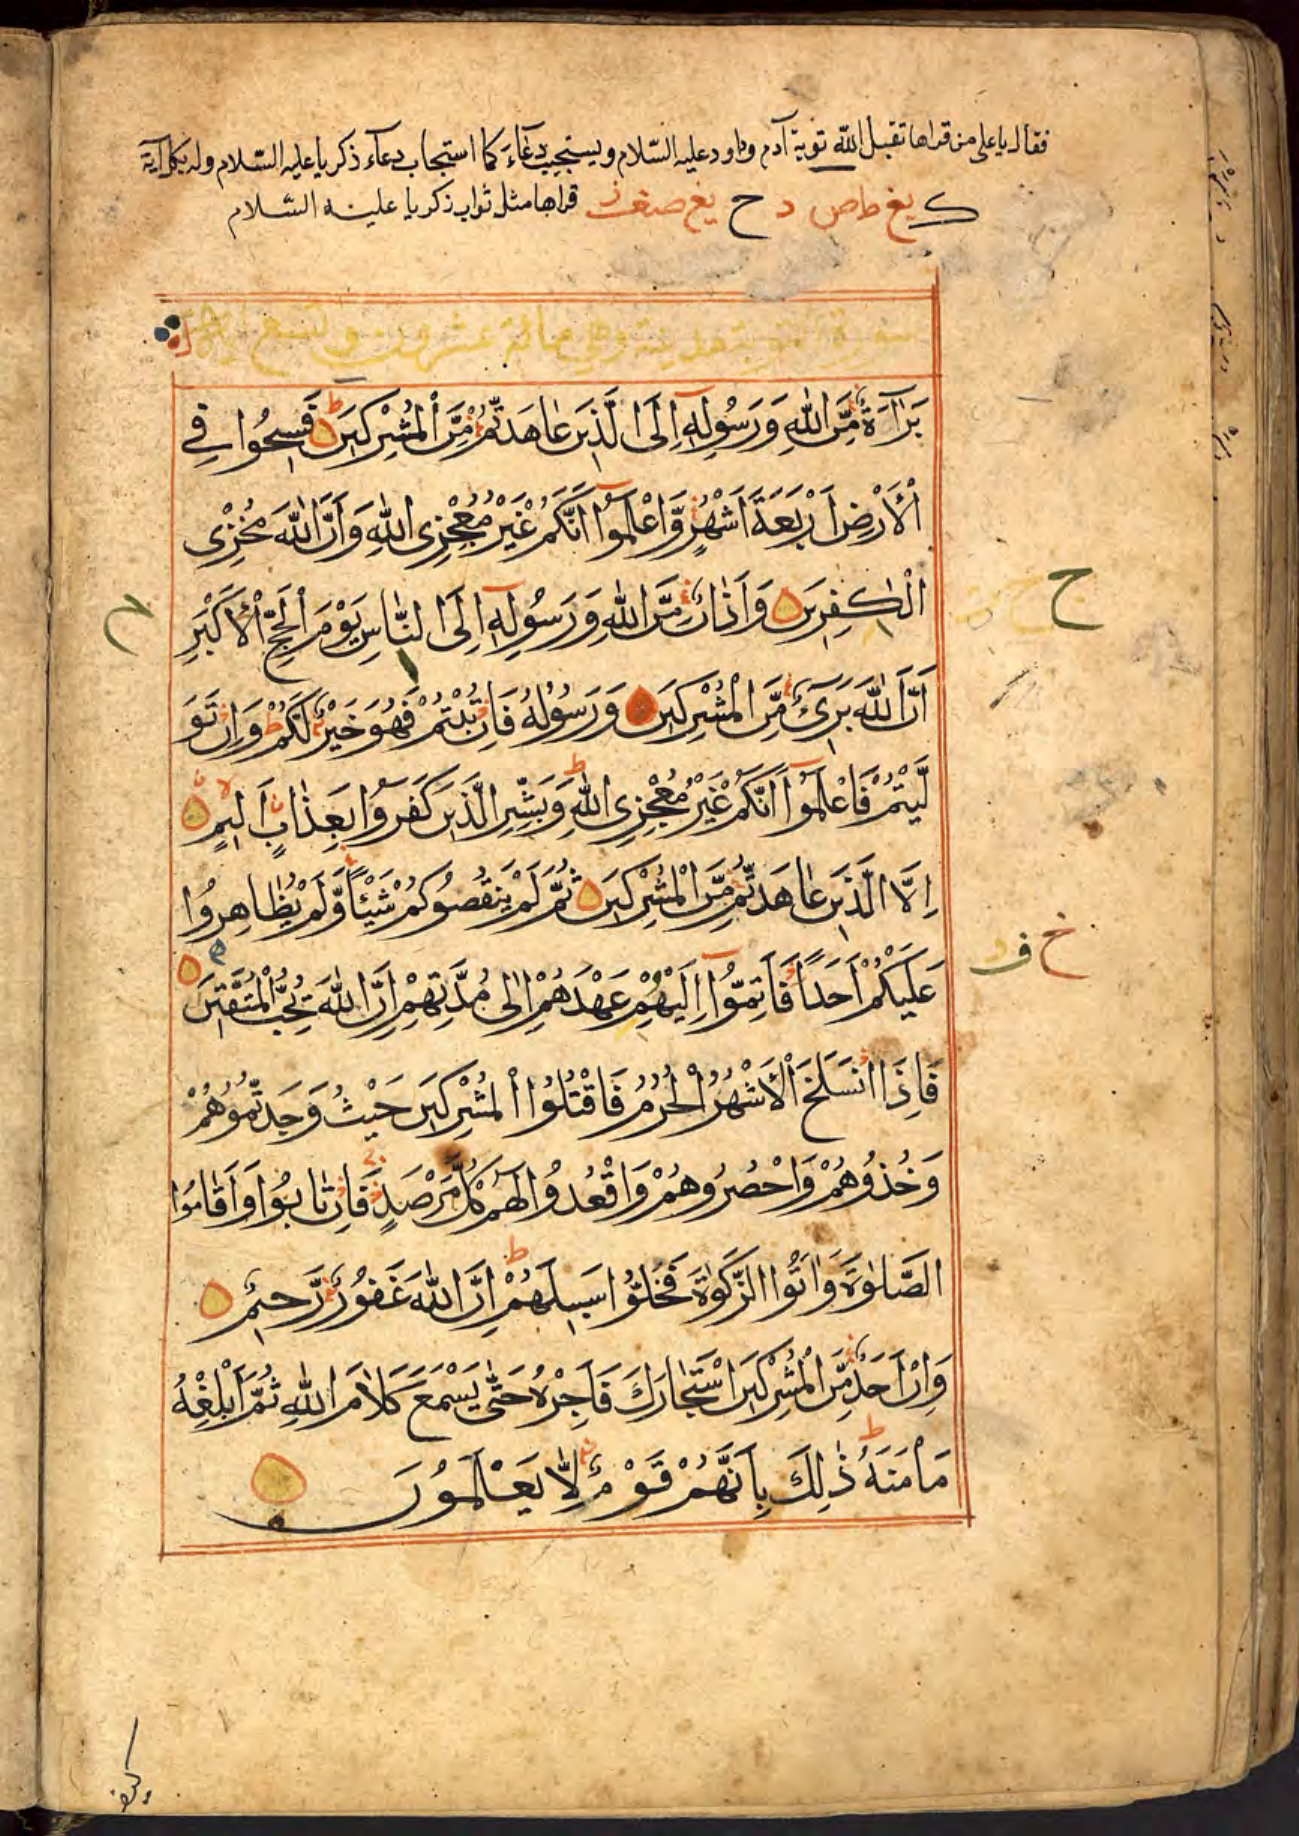 فقال يا علي من قراها تقبل الله توبة آدم وداود عليه السلام ويستجيب دعاءه كما استجاب دعآء ذكريا عليه السّلام وله بكل آية
قراها مثل ثواب ذكريا علينه السّلام
سورة التوبة مدينة وهي مائة عشرون وتسع آية
بَرَآءَةٌ مِّنَ اللّٰهِ وَرَسُولِهٖٓ اِلَى الَّذِينَ عَاهَدْتُّمْ مِّنَ الْمُشْرِكِينَ فَسِيحُوا فِي
الْاَرْضِ اَرْبَعَةَ اَشْهُرٍ وَّاعْلَمُوٓا اَنَّكُمْ غَيْرُ مُعْجِزِى اللّٰهِ وَاَنَّ اللّٰهَ مُخْزِى
الْكٰفِرِينَ وَاَذَانٌ مِّنَ اللّٰهِ وَرَسُولِهٖٓ اِلَى النَّاسِ يَوْمَ الْحَجِّ الْاَكْبَرِ
اَنَّ اللّٰهَ بَرِىٓءٌ مِّنَ الْمُشْرِكِينَ وَرَسُولُهُ فَاِنْ تُبْتُمْ فَهُوَ خَيْرٌ لَّكُمْ وَاِنْ تَوَ
لَّيْتُمْ فَاعْلَمُوٓا اَنَّكُمْ غَيْرُ مُعْجِزِى اللّٰهِ وَبَشِّرِ الَّذِينَ كَفَرُوا بِعَذَابٍ اَلِيمٍ
اِلَّا الَّذِينَ عَاهَدْتُّمْ مِّنَ الْمُشْرِكِينَ ثُمَّ لَمْ يَنْقُصُوكُمْ شَيْئًا وَّلَمْ يُظَاهِرُوا
عَلَيْكُمْ اَحَدًا فَاَتِمُّوٓا اِلَيْهِمْ عَهْدَهُمْ اِلٰى مُدَّتِهِمْ اِنَّ اللّٰهَ يُحِبُّ الْمُتَّقِينَ
فَاِذَا انْسَلَخَ الْاَشْهُرُ الْحُرُمُ فَاقْتُلُوا الْمُشْرِكِينَ حَيْثُ وَجَدْتُّمُوهُمْ
وَخُذُوهُمْ وَاحْصُرُوهُمْ وَاقْعُدُوا لَهُمْ كُلَّ مَرْصَدٍ فَاِنْ تَابُوا وَاَقَامُوا
الصَّلٰوةَ وَاٰتَوُا الزَّكٰوةَ فَخَلُّوا سَبِيلَهُمْ اِنَّ اللّٰهَ غَفُورٌ رَّحِيمٌ
وَاِنْ اَحَدٌ مِّنَ الْمُشْرِكِينَ اسْتَجَارَكَ فَاَجِرْهُ حَتّٰى يَسْمَعَ كَلَامَ اللّٰهِ ثُمَّ اَبْلِغْهُ
مَاْمَنَهُ ذٰلِكَ بِاَنَّهُمْ قَوْمٌ لَّا يَعْلَمُونَ